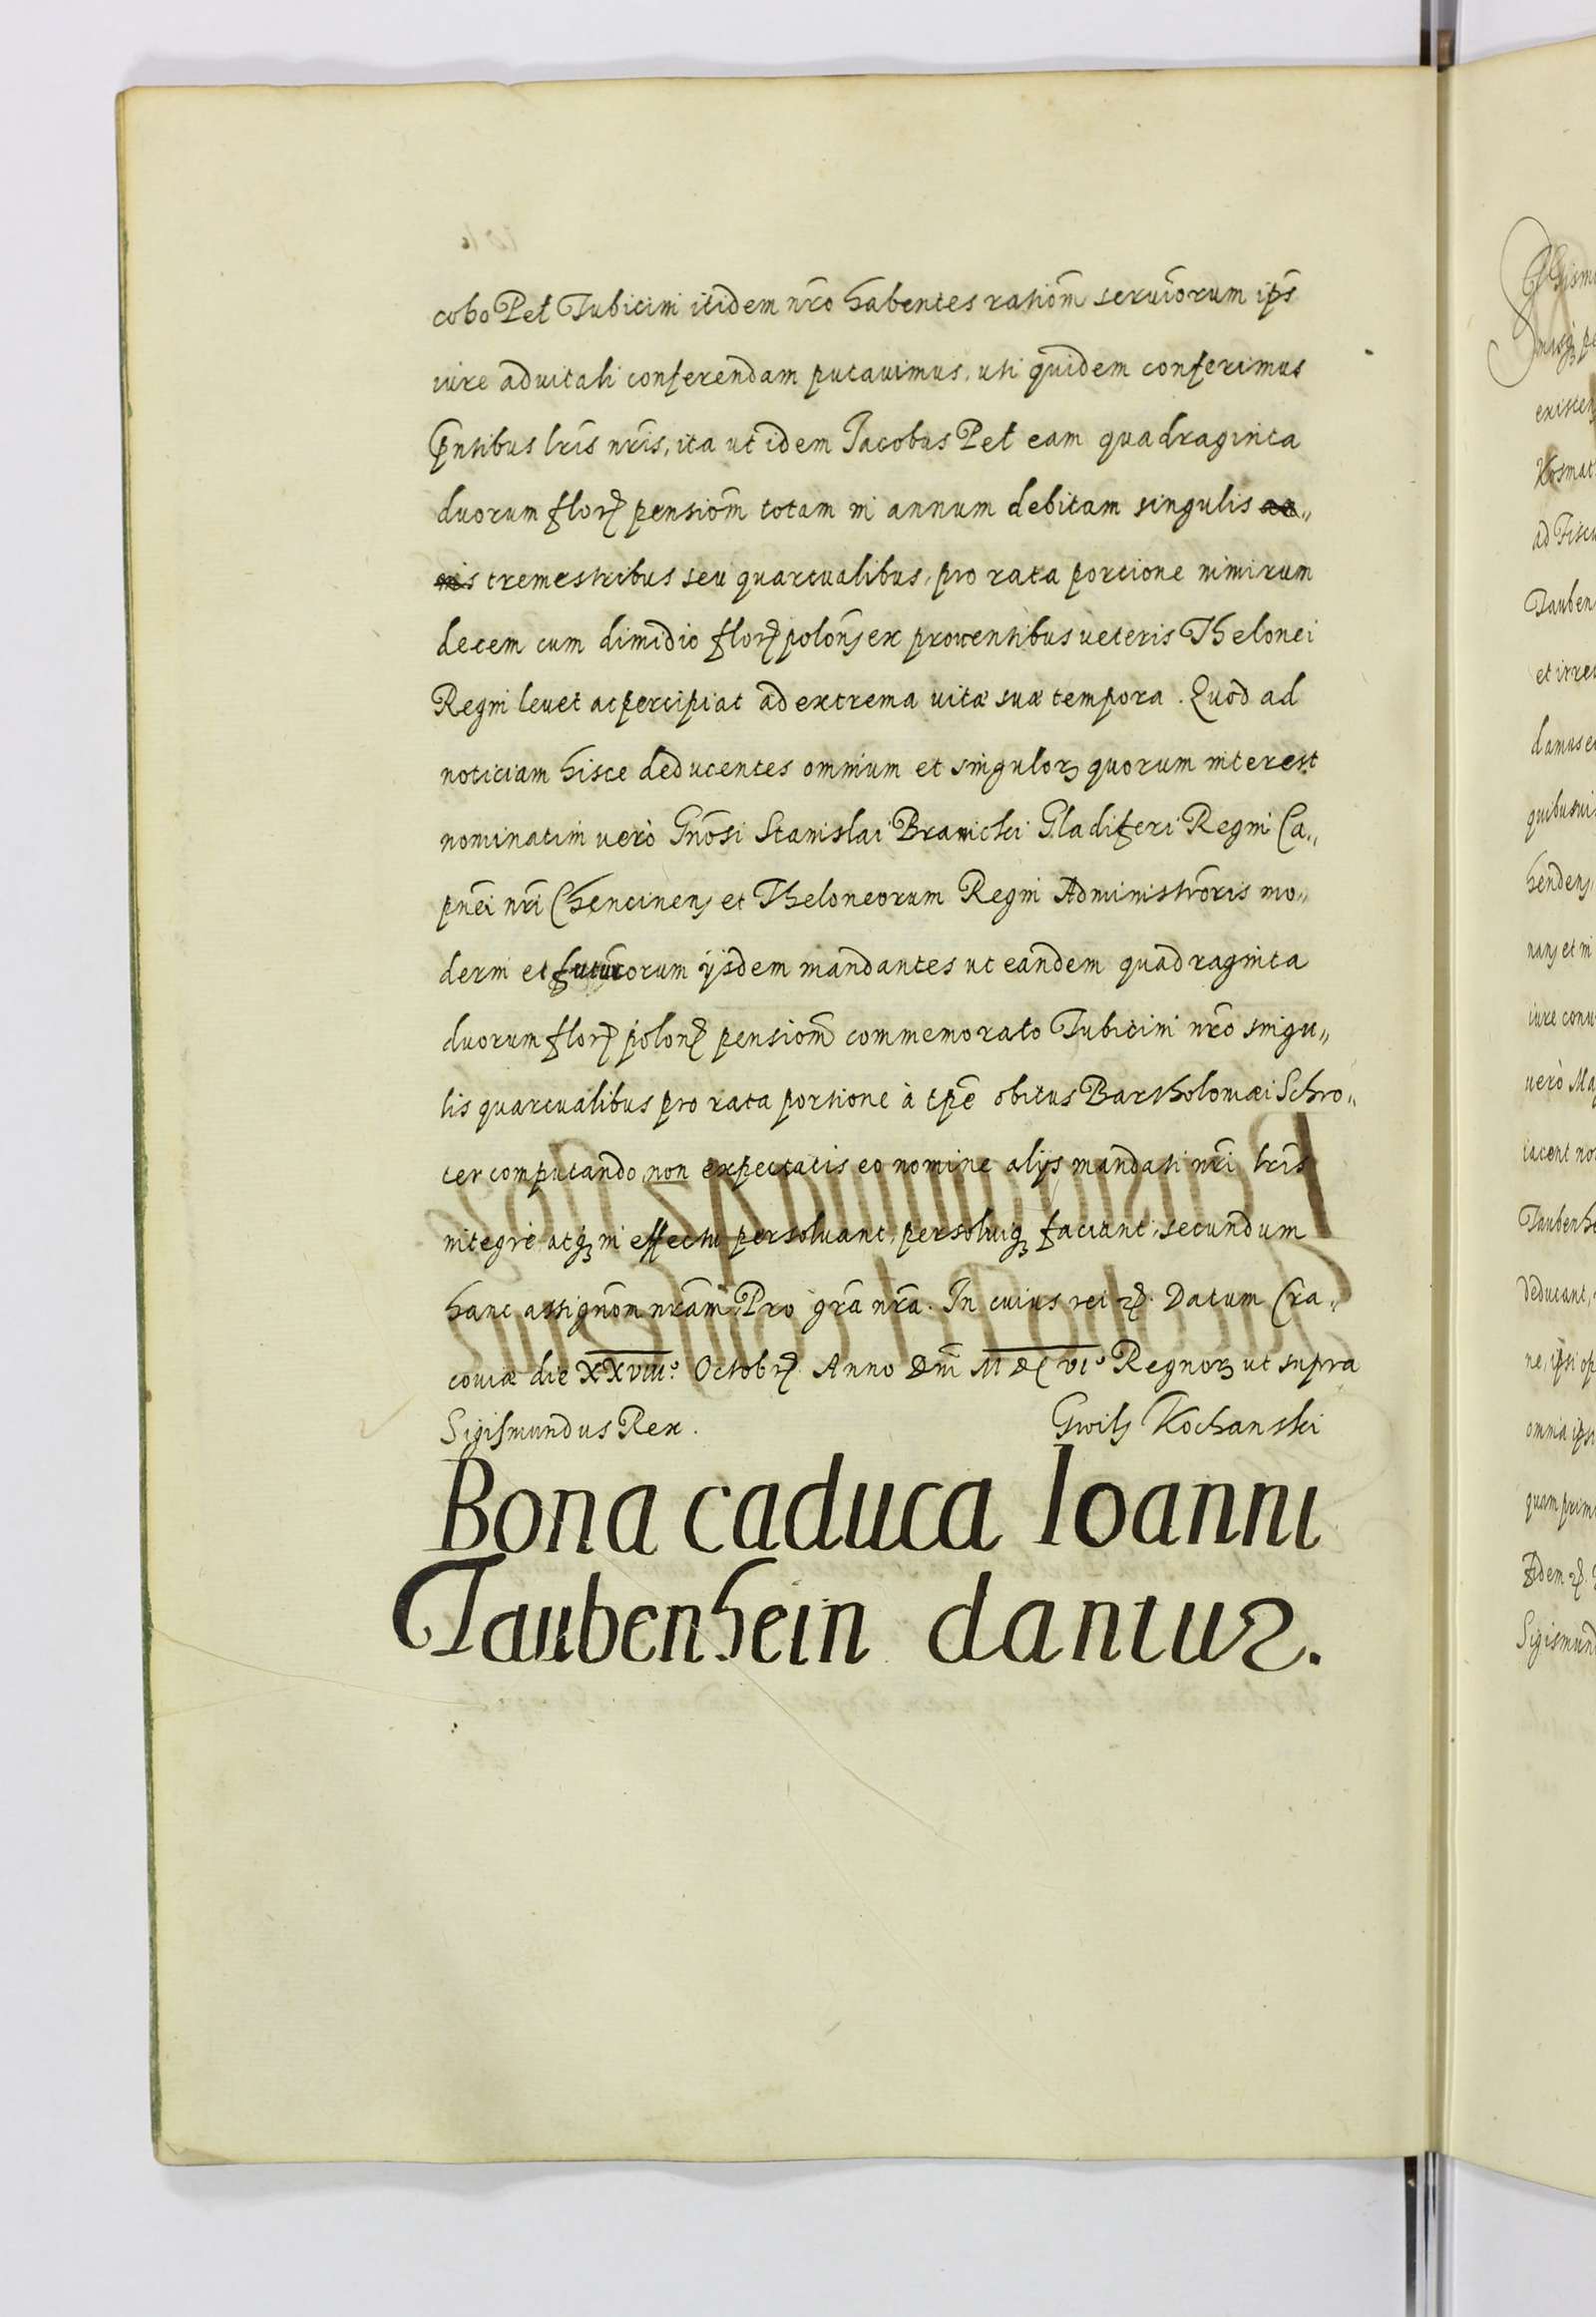 cobo Pet Tubicini itidem nro habentes rationm seruiorum ips
iure aduitali conferendam putauimus, uti quidem conferimus
pntibus lris nris, ita ut idem Jacobus Pet eam quadraginta
duorum flor pensiom totam in annum debitam singulis an„
nis tremestribus seu quartualibus, pro rata portione nimirum
decem cum dimidio flor polon ex prouentibus ueteris Thelonei
Regni leuet ac percipiat ad extrema uitæ suæ tempora. Quod ad
noticiam hisce deducentes omnium et singulor quorum interest
nominatim uerò Gnosi Stanislai Branicki Gladiferi Regni Ca„
pnei nri Chencinen et Theloneorum Regni Administroris mo„
derni et futurorum ijsdem mandantes ut eandem quadraginta
duorum flor polon pensiom commemorato Tubicini nro singu„
lis quartualibus pro rata portione à tpe obitus Bartholomæi Schro„
ter computando, non expectatis eo nomine alijs mandati nri lris
integrè atq in effectu persoluant, persoluiq faciant, secundum
hanc assignom nram. Pro gra nra. In cuius rei &. Datum Cra„
couiæ die XXVIII° Octobr. Anno Dni M DC VI° Regnor ut supra
Sigismundus Rex. Gwils Kochanski
Bona caduca Ioanni
Taubenhein dantur.